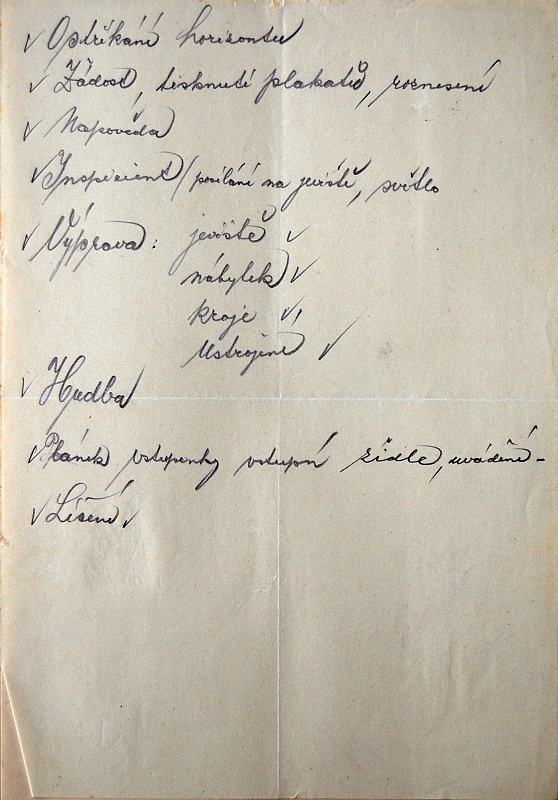 √ Optřikání horizontu
√ Žádost, tisknutí plakatů, roznesení
√ Napověda
√ Inspicient / posílání na jeviště, světlo
√ Výprava: jeviště √
nábytek √
kroje √,
Ustrojení √
√ Hudba
√ Plánek vstupenky vstupní židle, uvádění -
√ Líčení √